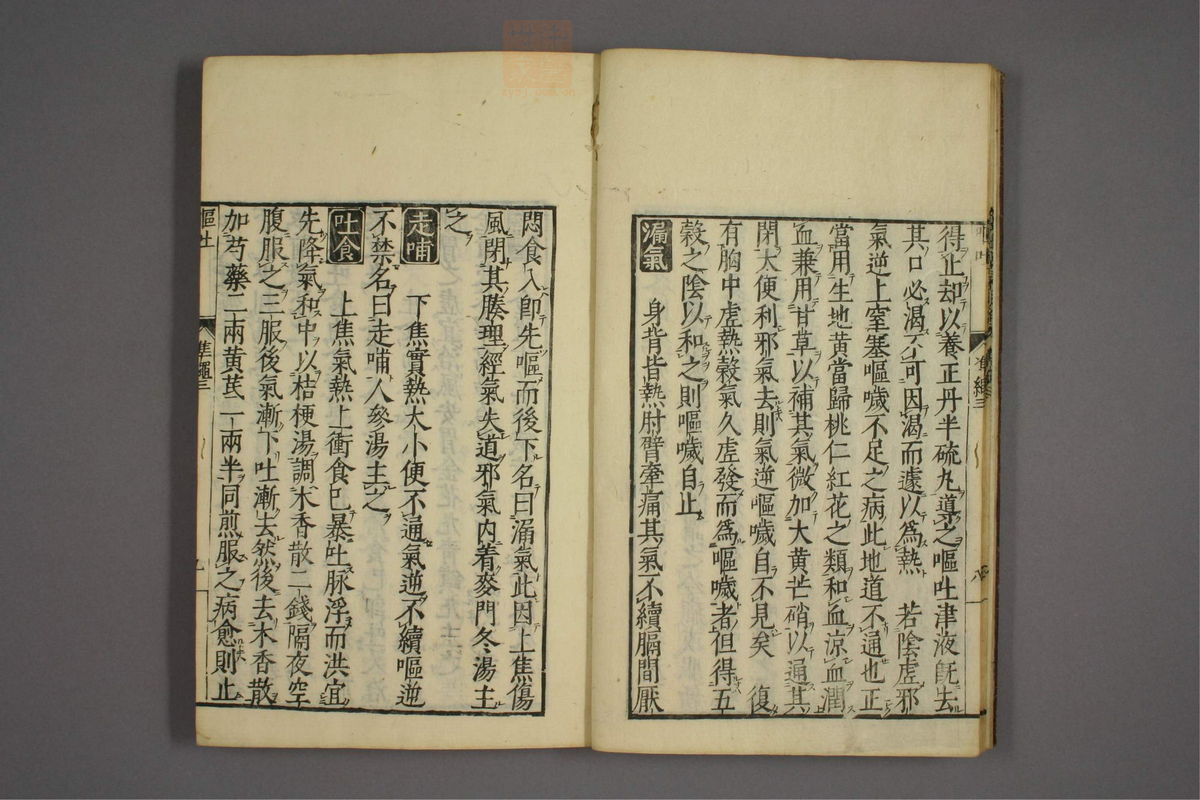 得止却以養正丹半硫丸導之嘔吐津液旣去
其口必渴不可因渴而遽以爲熱　若陰虛邪
氣逆上窒塞嘔噦不足之病此地道不通也正
當用生地黄當歸桃仁紅花之類和血涼血潤
血兼用甘草以補其氣微加大黄芒硝以通其
閉大便利邪氣去則氣逆嘔噦自不見矣　復
有胸中虛熱穀氣久虛發而爲嘔噦者但得五
穀之陰以和之則嘔噦自止
漏氣
身背皆熱肘臂牽痛其氣不續膈間厭
悶食入卽先嘔而後下名曰漏氣此因上焦傷
風閉其腠理經氣失道邪氣内着麥門冬湯主
之
走哺
下焦實熱大小便不通氣逆不續嘔逆
不禁名曰走哺人參湯主之
吐食
上焦氣熱上衝食已暴吐脉浮而洪宜
先降氣和中以桔梗湯調木香散二錢隔夜空
腹服之三服後氣漸下吐漸去然後去木香散
加芍藥二兩黄芪一兩半同煎服之病愈則止
嘔吐
準繩三